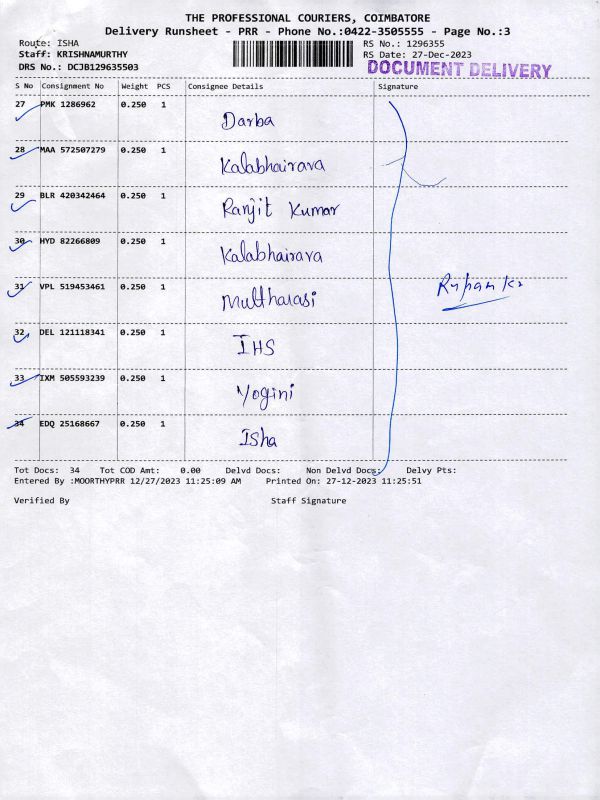 THE PROFESSIONAL COURIERS, COIMBATORE
Delivery Runsheet - PRR - Phone No.:0422-3505555 - Page No.:3
Route: ISHA RS No.: 1296355
Staff: KRISHNAMURTHY RS Date: 27-Dec-2023
DRS No.: DCJB129635503 DOCUMENT DELIVERY
S No Consignment No Weight PCS Consignee Details Signature
27 PMK 1286962 0.250 1 Darba
28 MAA 572507279 0.250 1 Kalabhairava
29 BLR 420342464 0.250 1 Ranjit Kumar
30 HYD 82266809 0.250 1 Kalabhairava
31 VPL 519453461 0.250 1 Multharasi
32 DEL 121118341 0.250 1 IHS
33 IXM 505593239 0.250 1 Yogini
34 EDQ 25168667 0.250 1 Isha
Tot Docs: 34 Tot COD Amt: 0.00 Delvd Docs: Non Delvd Docs: Delvy Pts:
Entered By :MOORTHYPRR 12/27/2023 11:25:09 AM Printed On: 27-12-2023 11:25:51
Verified By Staff Signature